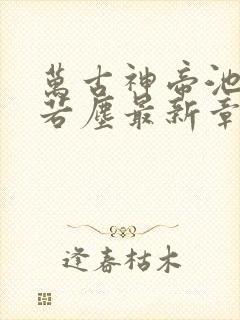 萬古神帝池
若塵最新章
逢春枯木